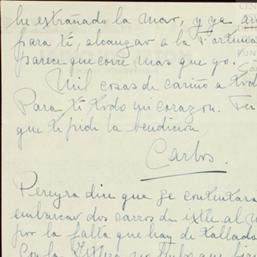 he extrañado la mar, y ya
para tí, alcanzar a la Fortuna
parece que corre mas que yo.
Mil cosas de cariño a tod
Para tí todo mi corazon.
que te pide la bendicion
Carlos.
Pereyra dice que se contentara
embarcar dos carros de ixtle al
por la falta que hay de tallado